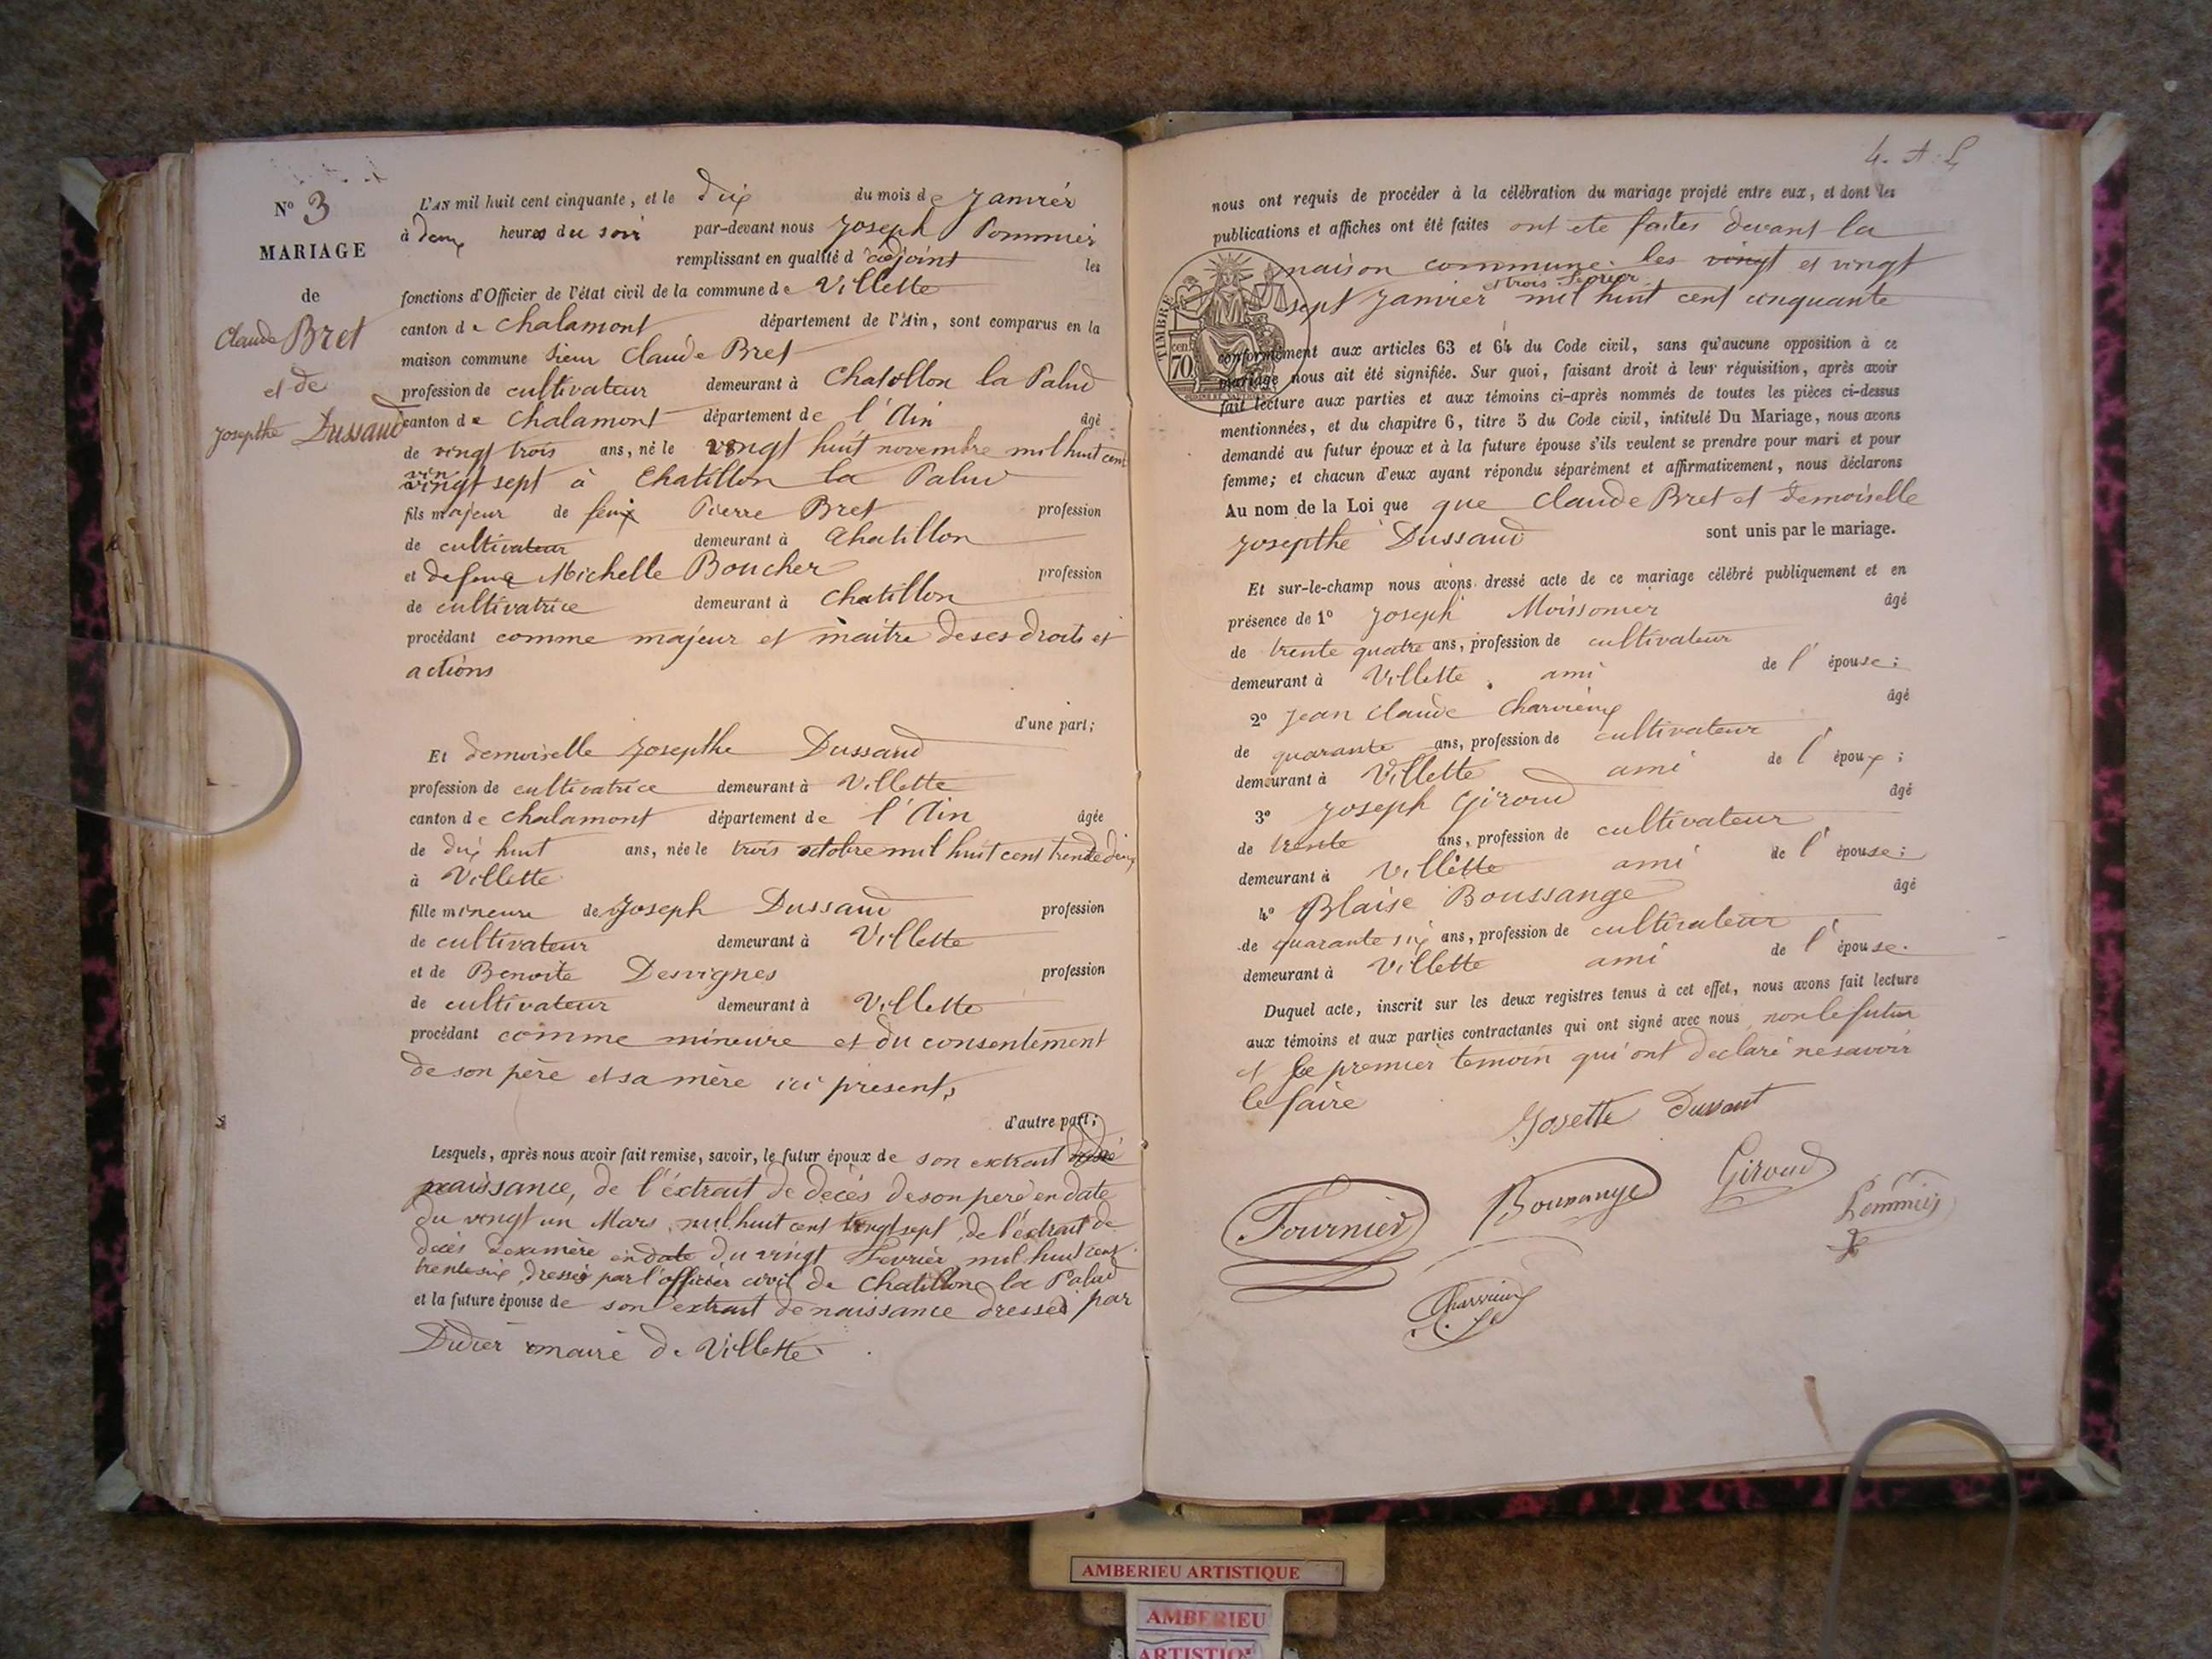 N° 3
MARIAGE
de
Claude Bret
et de
Josepthe Dussaud
L'AN mil huit cent cinquante, et le dix du mois de Janvier
à deux heures du soir par-devant nous Joseph Pommier
remplissant en qualité d'adjoint les
fonctions d'Officier de l'état civil de la commune de Villette
canton de Chalamont département de l'Ain, sont comparus en la
maison commune Sieur Claude Bret
profession de cultivateur demeurant à Chatillon la Palud
canton de Chalamont département de l'Ain âgé
de vingt trois ans, né le vingt huit novembre mil huit cent
vingt sept à Chatillon la Palud
fils majeur de feux Pierre Bret profession
de cultivateur demeurant à Chatillon
et de feue Michelle Boucher profession
de cultivatrice demeurant à Chatillon
procédant comme majeur et maitre de ses droits et
actions
d'une part;
Et demoiselle Josepthe Dussaud
profession de cultivatrice demeurant à Villette
canton de Chalamont département de l'Ain âgée
de dix huit ans, née le trois octobre mil huit cent trente deux
à Villette
fille mineure de Joseph Dussaud profession
de cultivateur demeurant à Villette
et de Benoite Desvignes profession
de cultivateur demeurant à Villette
procédant comme mineure et du consentement
de son père et sa mère ici present,
d'autre part;
Lesquels, après nous avoir fait remise, savoir, le futur époux de son extrait
naissance, de l'éxtrait de decès de son pere en date
du vingt un Mars mil huit cent vingt sept, de l'éxtrait de
decès de sa mère en date du vingt Fevrier mil huit cent
trente six dressés par l'officier civil de Chatillon la Palud
et la future épouse de son extrait de naissance dressée par
Didier maire de Villette.
4. A. L
nous ont requis de procéder à la célébration du mariage projeté entre eux, et dont les
publications et affiches ont été faites ont ete faites devant la
maison commune. les vingt et vingt
et trois fevrier
sept Janvier mil huit cent cinquante
TIMBRE
70 cent
conformément aux articles 63 et 64 du Code civil, sans qu'aucune opposition à ce
mariage nous ait été signifiée. Sur quoi, faisant droit à leur réquisition, après avoir
fait lecture aux parties et aux témoins ci-après nommés de toutes les pièces ci-dessus
mentionnées, et du chapitre 6, titre 5 du Code civil, intitulé Du Mariage, nous avons
demandé au futur époux et à la future épouse s'ils veulent se prendre pour mari et pour
femme; et chacun d'eux ayant répondu séparément et affirmativement, nous déclarons
Au nom de la Loi que que Claude Bret et demoiselle
Josepthe Dussaud sont unis par le mariage.
Et sur-le-champ nous avons dressé acte de ce mariage célébré publiquement et en
présence de 1° Joseph Moissonier âgé
de trente quatre ans, profession de cultivateur
demeurant à Villette. ami de l'épouse;
2° Jean Claude Charvieux âgé
de quarante ans, profession de cultivateur
demeurant à Villette ami de l'époux;
3° Joseph Giroud âgé
de trente ans, profession de cultivateur
demeurant à Villette ami de l'épouse;
4° Blaise Boussange âgé
de quarante six ans, profession de cultivateur
demeurant à Villette ami de l'épouse.
Duquel acte, inscrit sur les deux registres tenus à cet effet, nous avons fait lecture
aux témoins et aux parties contractantes qui ont signé avec nous non le futur
et le premier temoin qui ont declaré ne savoir
le faire
Josette Dussaut
Fournier Boussange Giroud Pommier
Charvieux
AMBERIEU ARTISTIQUE
AMBERIEU
ARTISTIQ